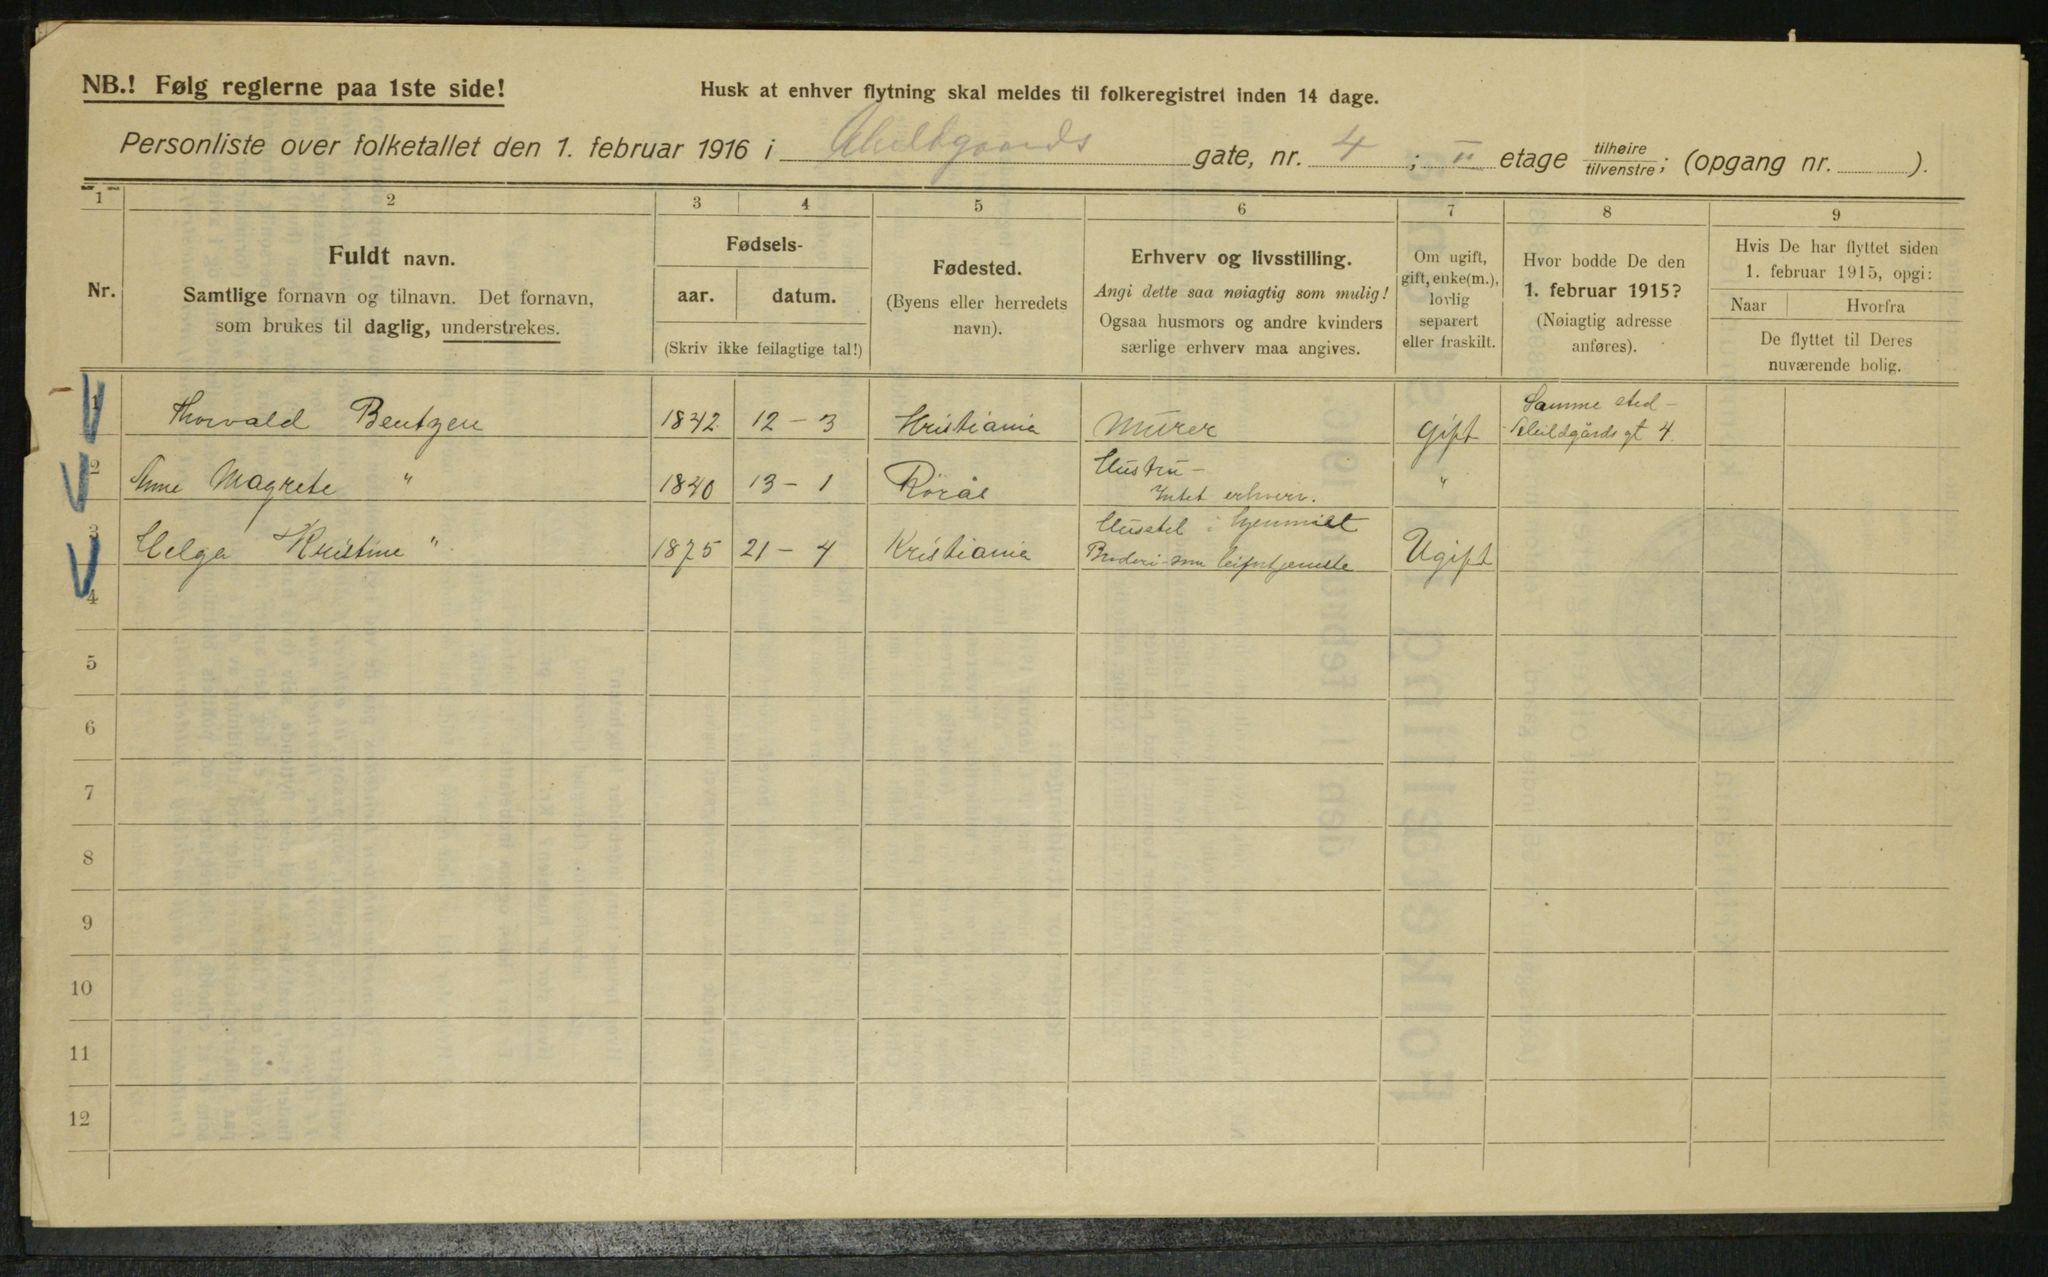 NB.! Følg reglerne paa 1ste side!
Husk at enhver flytning skal meldes til folkeregistret inden 14 dage.
Personliste over folketallet den 1. februar 1916 i Abildgaards gate, nr. 4 ; II etage tilhøire/tilvenstre; (opgang nr. ).
1 2 3 4 5 6 7 8 9
Nr.
Fuldt navn.
Samtlige fornavn og tilnavn. Det fornavn,
som brukes til daglig, understrekes.
Fødsels-
aar. datum.
(Skriv ikke feilagtige tal!)
Fødested.
(Byens eller herredets
navn).
Erhverv og livsstilling.
Angi dette saa nøiagtig som mulig!
Ogsaa husmors og andre kvinders
særlige erhverv maa angives.
Om ugift,
gift, enke(m.),
lovlig
separert
eller fraskilt.
Hvor bodde De den
1. februar 1915?
(Nøiagtig adresse
anføres).
Hvis De har flyttet siden
1. februar 1915, opgi:
Naar Hvorfra
De flyttet til Deres
nuværende bolig.
1 Thorvald Bentzen 1842 12 - 3 Kristiania Murer Gift Samme sted -
Abildgårds gt 4
2 Anne Magrete " 1840 13 - 1 Rörås Hustru -
Intet erhverv. "
3 Helga Kristine " 1875 21 - 4 Kristiania Husstel i hjemmet
Broderi som bifortjeneste Ugift
4
5
6
7
8
9
10
11
12